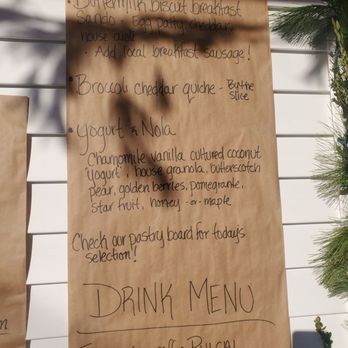 • Buttermilk biscuit breakfast
Sando - Egg patty, cheddar,
house aioli
• Add local breakfast sausage!
• Broccoli cheddar quiche - By the
slice
• Yogurt & Nola
Chamomile vanilla cultured coconut
"yogurt", house granola, butterscotch
pear, golden berries, pomegranate,
star fruit, honey -or- maple
Check our pastry board for todays
selection!
DRINK MENU